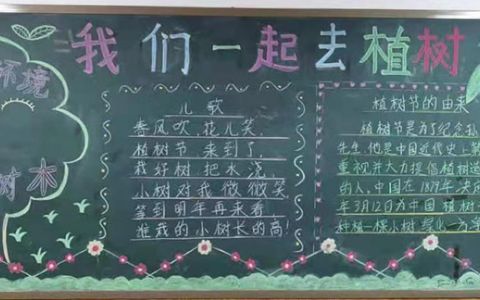 我们一起去植树
环境
树木
儿歌
春风吹,花儿笑,
植树节 来到了,
我好树 把水浇,
小树对我微微笑,
等到明年再来看,
谁栽的小树长的高!
植树节的由来
植树节是为了纪念孙
先生,他是中国近代史上
重视并大力提倡植树造
的人,中国在
年3月12日为中国植树
种植一棵小树